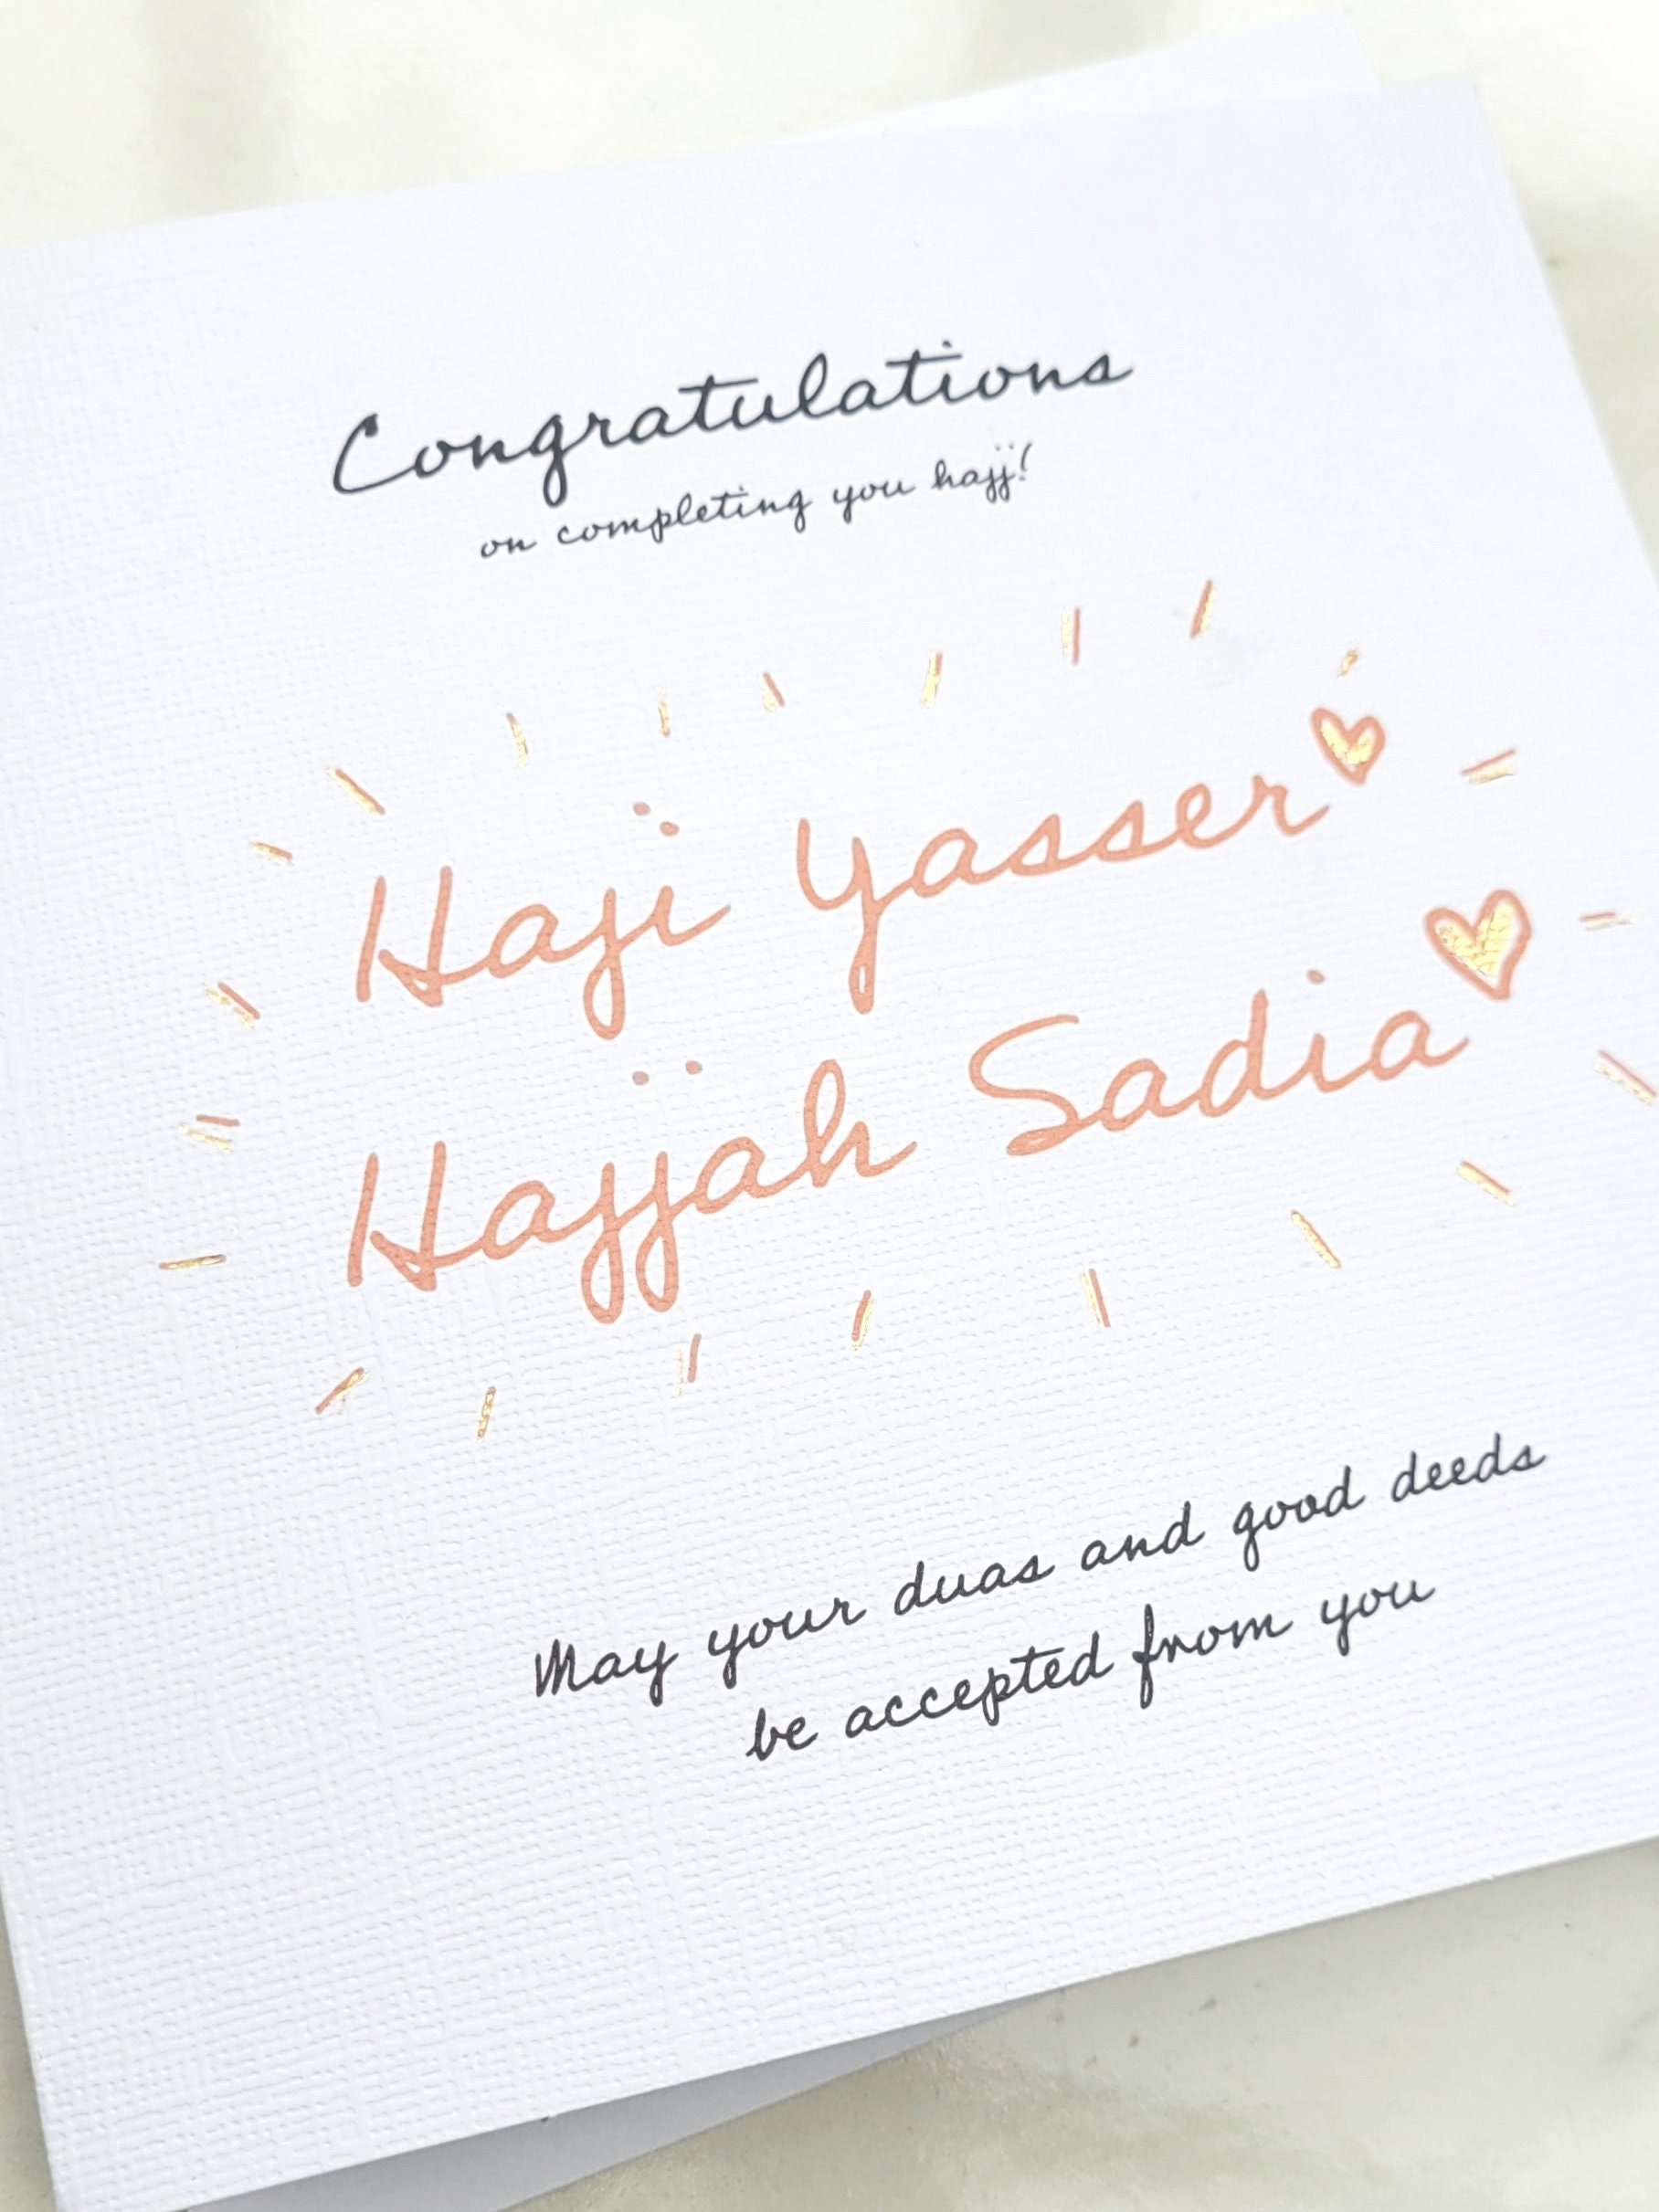 Congratulations
on completing you hajj!
Haji Yasser
Hajjah Sadia
May your duas and good deeds
be accepted from you